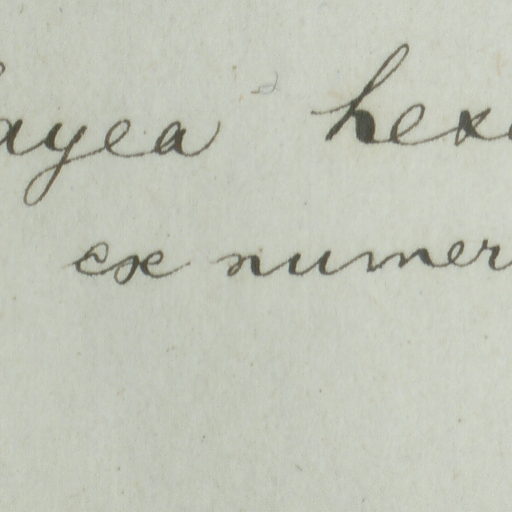 ayea hexe
ex numer